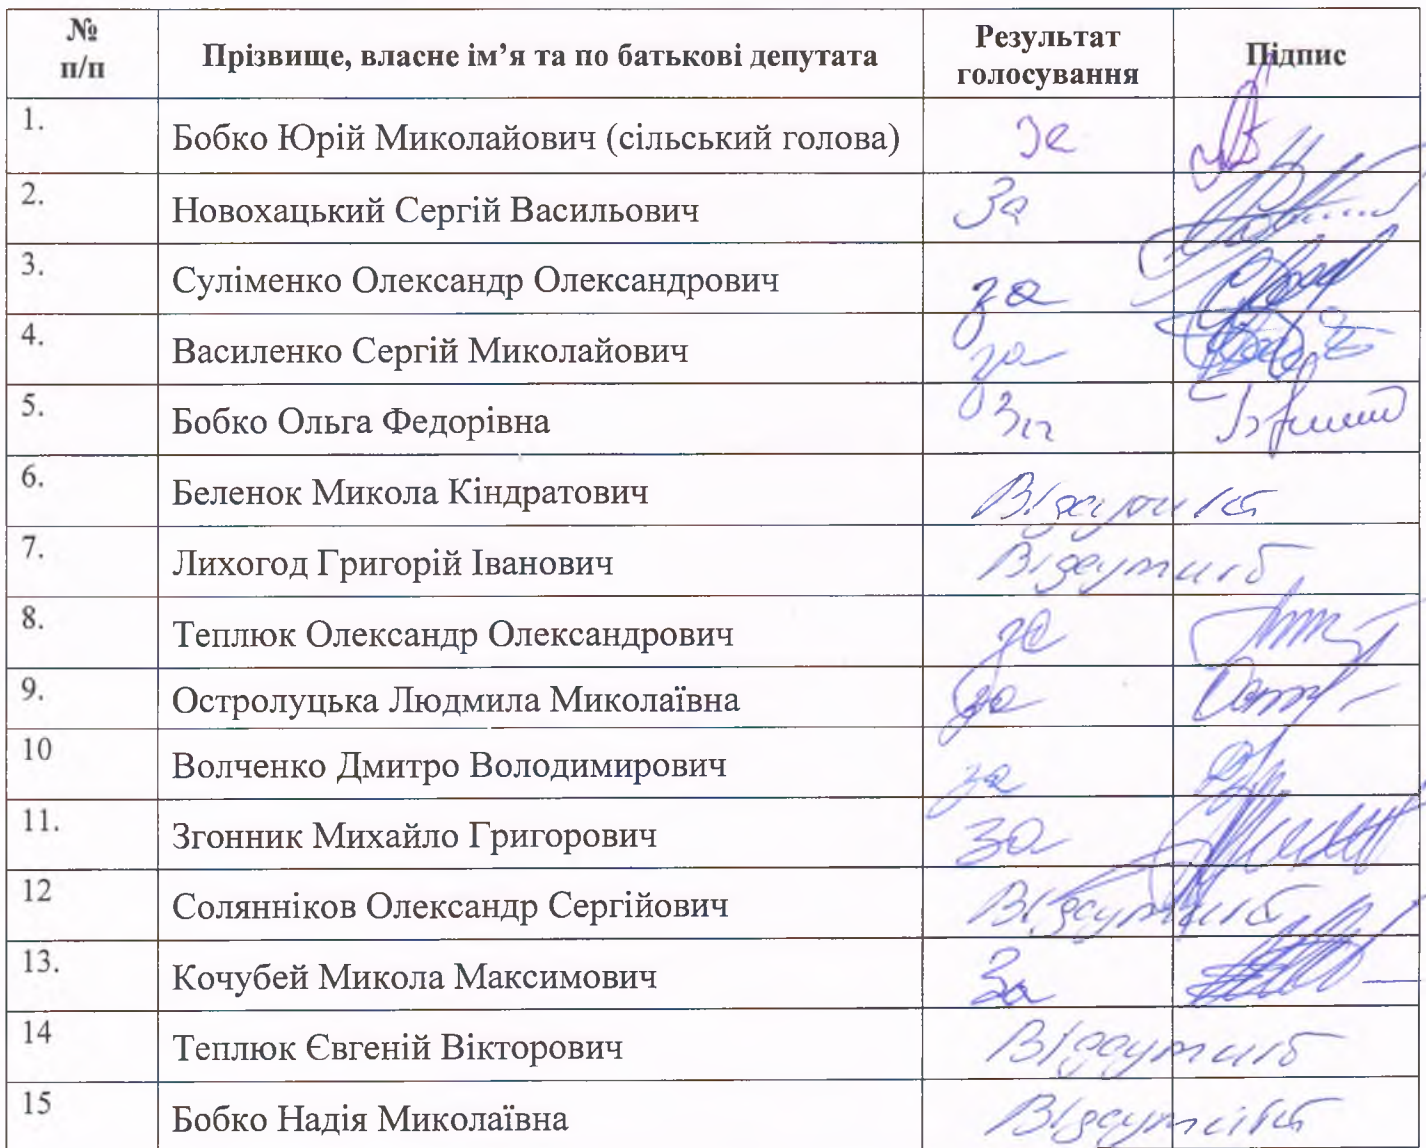 № п/п Прізвище, власне ім’я та по батькові депутата Результат голосування Підпис
1. Бобко Юрій Миколайович (сільський голова) За
2. Новохацький Сергій Васильович За
3. Суліменко Олександр Олександрович за
4. Василенко Сергій Миколайович за
5. Бобко Ольга Федорівна За
6. Беленок Микола Кіндратович Відсутній
7. Лихогод Григорій Іванович Відсутній
8. Теплюк Олександр Олександрович за
9. Остролуцька Людмила Миколаївна за
10 Волченко Дмитро Володимирович за
11. Згонник Михайло Григорович за
12 Солянніков Олександр Сергійович Відсутній
13. Кочубей Микола Максимович За
14 Теплюк Євгеній Вікторович Відсутній
15 Бобко Надія Миколаївна Відсутній